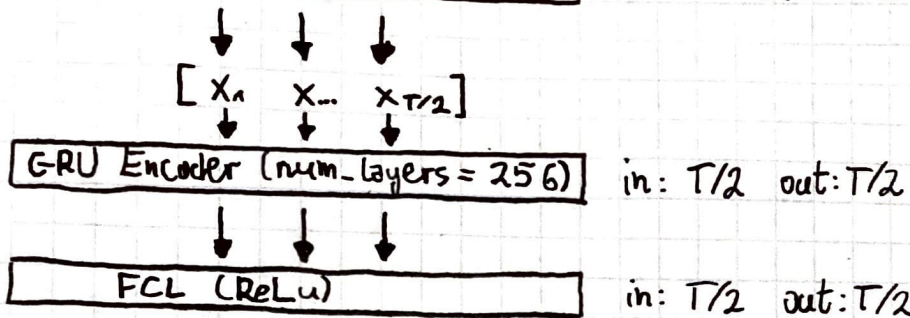 [ X₁ X... X T/2 ]
GRU Encoder (num_layers = 256) in: T/2 out: T/2
FCL (ReLu) in: T/2 out: T/2